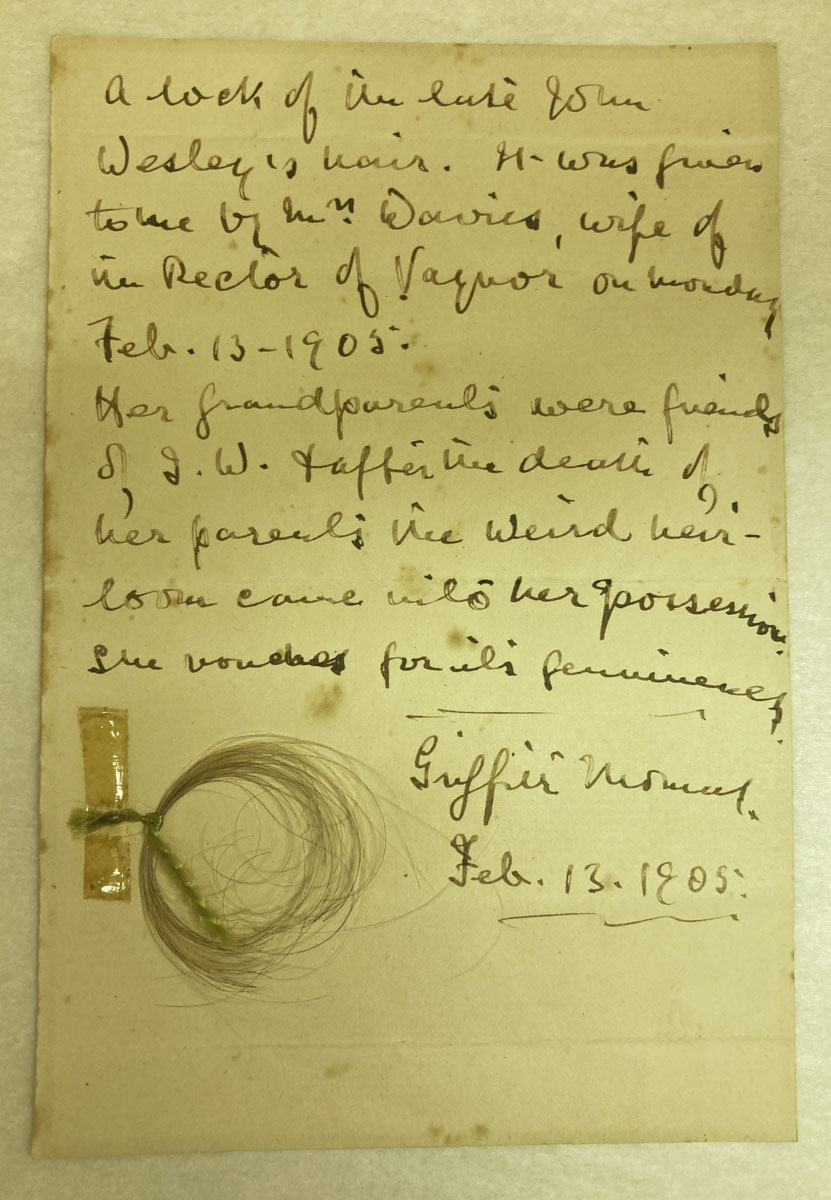 A lock of the late John
Wesley's hair. It was given
to me by Mrs Davies, wife of
the Rector of Vaynor on Monday
Feb. 13 - 1905.
Her grandparents were friends
of J. W. & after the death of
her parents the weird heir-
loom came into her possession.
She vouches for its genuineness.
Griffith Thomas.
Feb. 13. 1905.